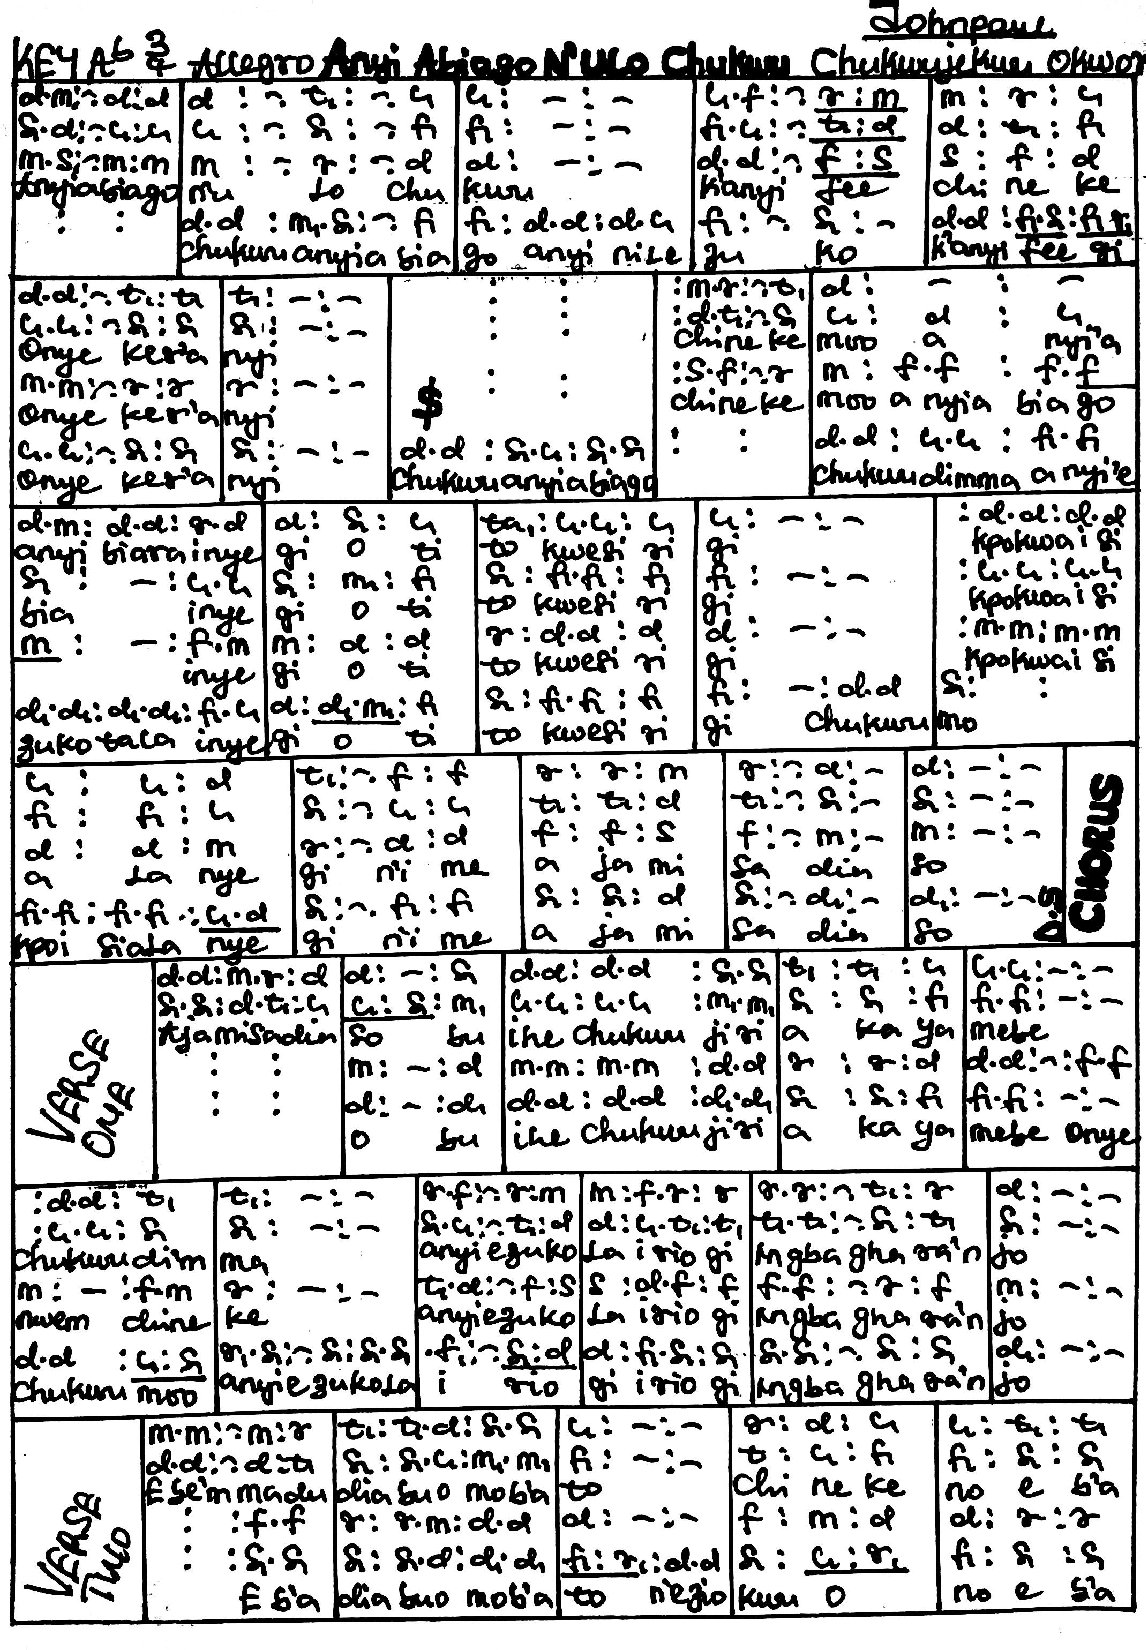 Johnpaul
KEY Ab 3/4 Allegro Anyi Abiago N'ULO Chukwu Chukwujekwu Okwor
d.m:~d:d d : ~ t₁ : ~ l₁ l₁ : – : – l₁.f:~ r:m m : r : l₁
s₁.d:~l₁:l₁ l₁ : ~ s₁ : ~ f₁ f₁ : – : – f₁.l₁:~ t₁:d d : t₁ : f₁
m.s:~m:m m : ~ r : ~ d d : – : – d.d:~ f:s s : f : d
Anyiabiago nu lo chu kwu Kanyi fee chi ne ke
: : d.d : m₁.s₁:~ f₁ f₁: d.d:d.l₁ f₁ : ~ s₁ : – d.d :f₁.s₁:f₁.r₁
Chukwu anyia bia go anyi nile zu ko kanyi fee gi
d.d:~ t₁:t₁ t₁: –:– : : :m.r:~t₁ d : – : –
l₁.l₁:~s₁:s₁ s₁: –:– : : :d.t₁:~s₁ l₁ : d : l₁
Onye kere'a nyi chineke moo a nyi'a
m.m:~r:r r: –:– : : :s.f:~r m : f.f : f.f
Onye kere'a nyi $ chineke moo a nyia bia go
l₁.l₁:~s₁:s₁ s₁: –:– d.d : s₁.l₁:s₁.s₁ : : d.d : l₁.l₁ : f₁.f₁
Onye kere'a nyi Chukwu anyiabiago Chukwu dimma a nyi'e
d.m: d.d: r.d d: s₁: l₁ ta₁:l₁.l₁: l₁ l₁: –:– : d.d:d.d
anyi biara inye gi o ti to kwesi ri gi kpokwa i si
s₁ : –:l₁.l₁ s₁: m₁: f₁ s₁: f₁.f₁: f₁ f₁: –:– : l₁.l₁:l₁.l₁
bia inye gi o ti to kwesi ri gi kpokwa i si
m : –:f.m m: d :d r:d.d : d d : –:– :m.m:m.m
inye gi o ti to kwesi ri gi kpokwa i si
d₁.d₁:d₁.d₁:f₁.l₁ d: d₁.m₁:f₁ s₁: f₁.f₁: f₁ f₁: –:d.d s₁: :
zuko tala inye gi o ti to kwesi ri gi Chukwu mo
l₁ : l₁: d t₁:~ f : f r: r: m r:~d:– d: –:–
f₁ : f₁ : l₁ s₁:~ l₁ : l₁ t₁: t₁:d t₁:~s₁:– s₁: –:–
d : d : m r:~d :d f : f :s f:~ m:– m: –:–
a la nye gi n'i me a ja mi sa dia so
f₁.f₁ : f₁.f₁ : l₁.d s₁:~ f₁:f₁ s₁: s₁: d s₁:~d₁:– d₁: –:–
kpoi siala nye gi n'i me a ja mi sa dia so D.S
CHORUS
VERSE ONE
d.d:m.r:d d: –:s₁ d.d: d.d :s₁.s₁ t₁ : t₁ : l₁ l₁.l₁:–:–
s₁.s₁:d.t₁:l₁ l₁: s₁:m₁ l₁.l₁: l₁.l₁ :m₁.m₁ s₁ : s₁ :f₁ f₁.f₁: –:–
Ajamisadia so bu ihe Chukwu jiri a ka ya mebe
: : m: –:d m.m: m.m :d.d r : r:d d.d:~:f.f
: : d: –:d₁ d.d: d.d :d₁.d₁ s₁ : s₁:f₁ f₁.f₁: –:–
o bu ihe Chukwu jiri a ka ya mebe onye
:d.d: t₁ t₁: –:– r.f:~r:m m:f.r: r r.r:~t₁: r d: –:–
:l₁.l₁: s₁ s₁: –:– s₁.l₁:~t₁:d d:l₁.t₁:t₁ t₁.t₁:~s₁:t₁ s₁: –:–
Chukwu dim ma anyiezuko la i rio gi mgba gha ra'n jo
m: – :f.m r: –:– t₁.d:~f:s s :d.f: f f.f: ~ r : f m: –:–
nwem chine ke anyiezuko la i rio gi mgba gha ra'n jo
d.d :l₁:s₁ r₁.s₁:~s₁:s₁.s₁ .f₁:~s₁:d d:f₁.s₁:s₁ s₁.s₁:~ s₁: s₁ d₁: –:–
Chukwu moo anyiezukola i rio gi i rio gi mgba gha ra'n jo
VERSE TWO
m.m:~m:r t₁: t₁.d: s₁.s₁ l₁: –:– r: d: l₁ l₁: t₁: t₁
d.d:~d:t₁ s₁: s₁.l₁: m₁.m₁ f₁: –:– t : l₁:f₁ f₁: s₁:s₁
Ebe'm madu dia buo moba to Chi ne ke no e b'a
: :f.f r: r.m:d.d d: –:– f : m :d d: r:r
: :s₁.s₁ s₁: s₁.d:d₁.d₁ f₁: r₁:d.d s₁: l₁:r₁ f₁: s₁ :s₁
E b'a dia buo moba to n'ezio kwu o no e b'a